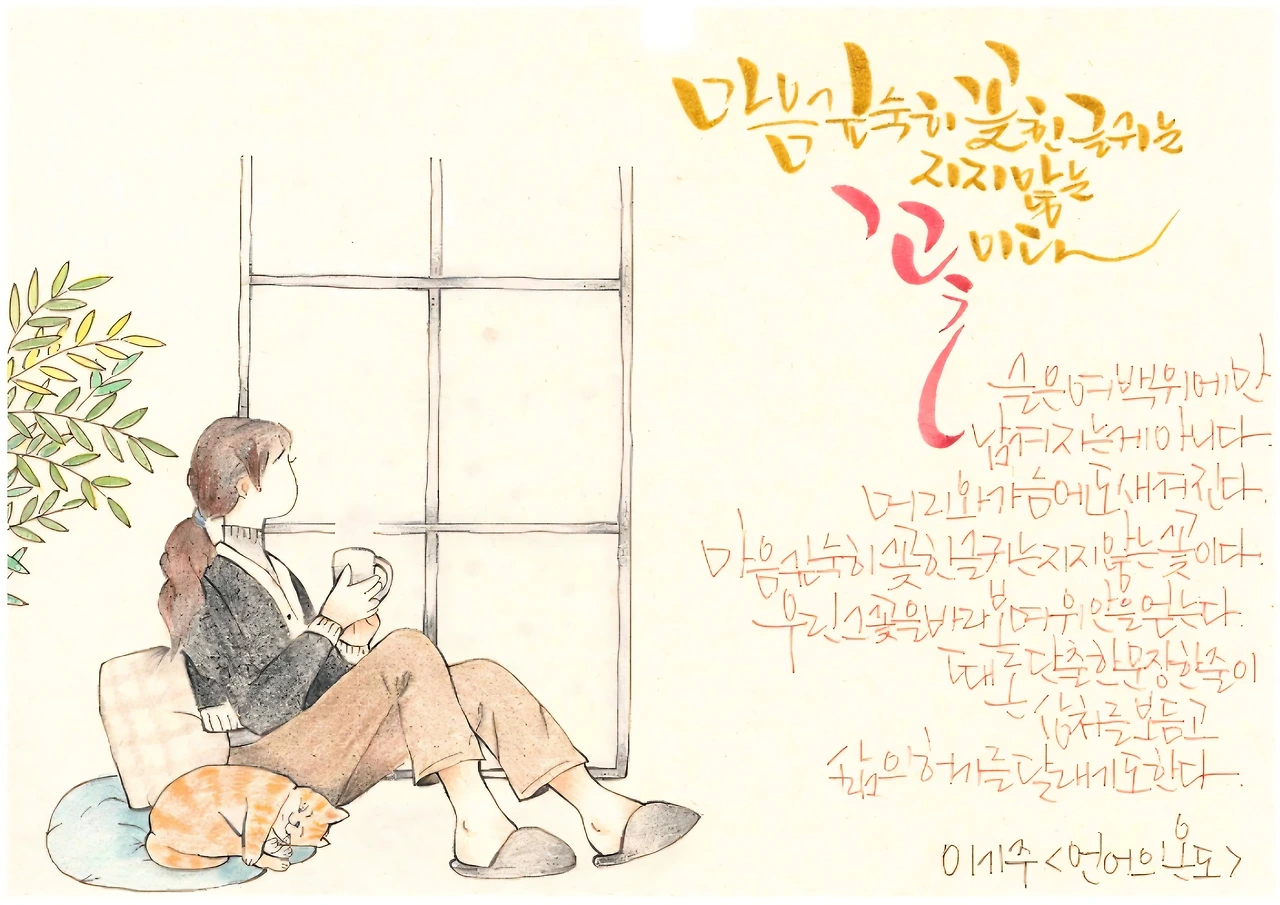 마음 깊숙히 꽂힌 글귀는
지지 않는
꽃이다
글은 여백 위에만
남겨지는게 아니다.
머리와 가슴에도 새겨진다.
마음 깊숙히 꽂힌 글귀는 지지 않는 꽃이다.
우린 그 꽃을 바라보며 위안을 얻는다.
때론 단출한 문장 한 줄이
상처를 보듬고
삶의 허기를 달래기도 한다.
이기주 <언어의 온도>